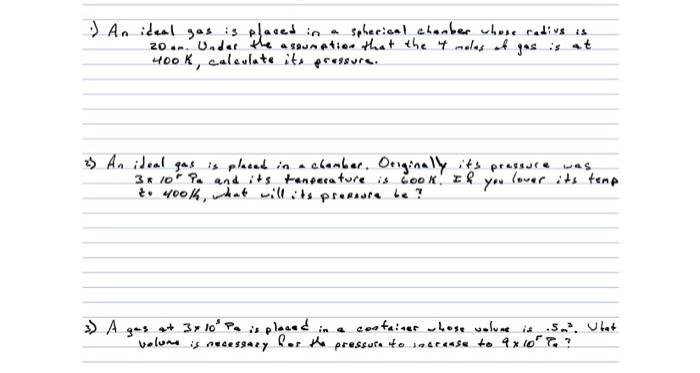 1) An ideal gas is placed in a spherical chamber whose radius is
20 cm. Under the assumption that the 4 moles of gas is at
400 K, calculate its pressure.
2) An ideal gas is placed in a chamber. Originally its pressure was
3 x 10⁵ Pa and its temperature is 600 K. If you lower its temp
to 400 K, what will its pressure be?
3) A gas at 3 x 10⁵ Pa is placed in a container whose volume is .5m³. What
volume is necessary for the pressure to increase to 9 x 10⁵ Pa?